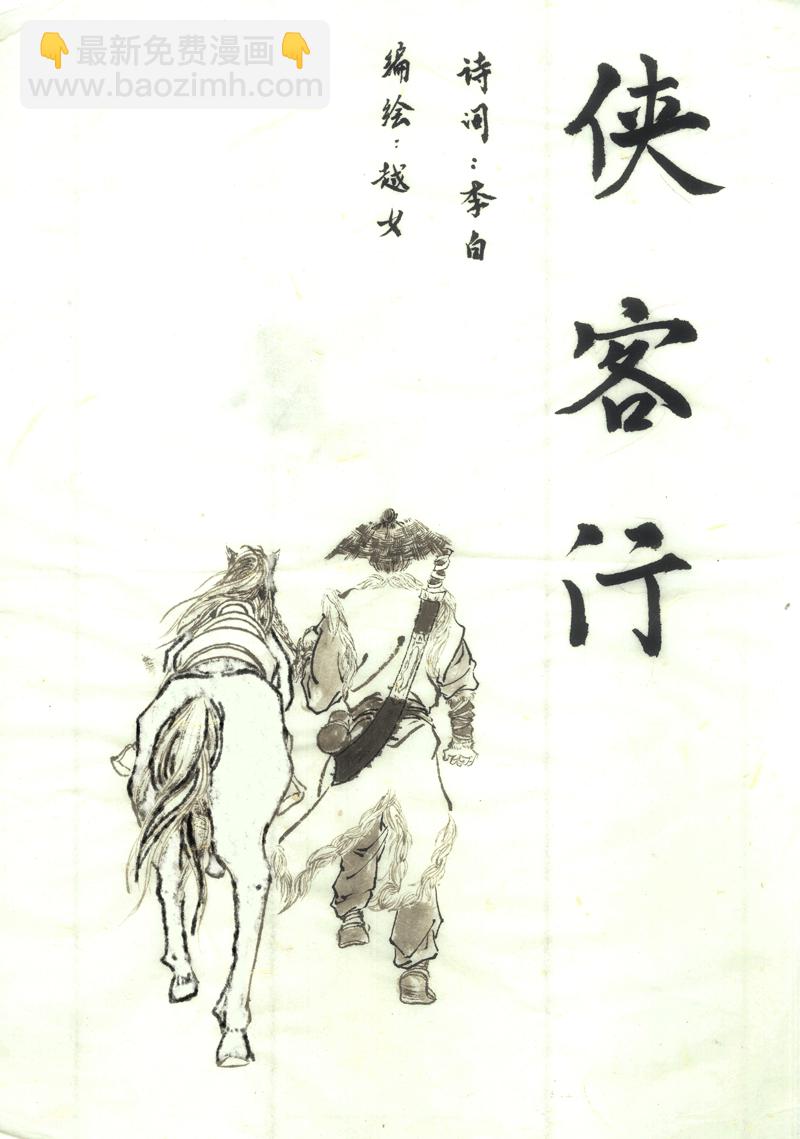 侠客行
诗词：李白
编绘：越女
👇最新免费漫画👇
www.baozimh.com